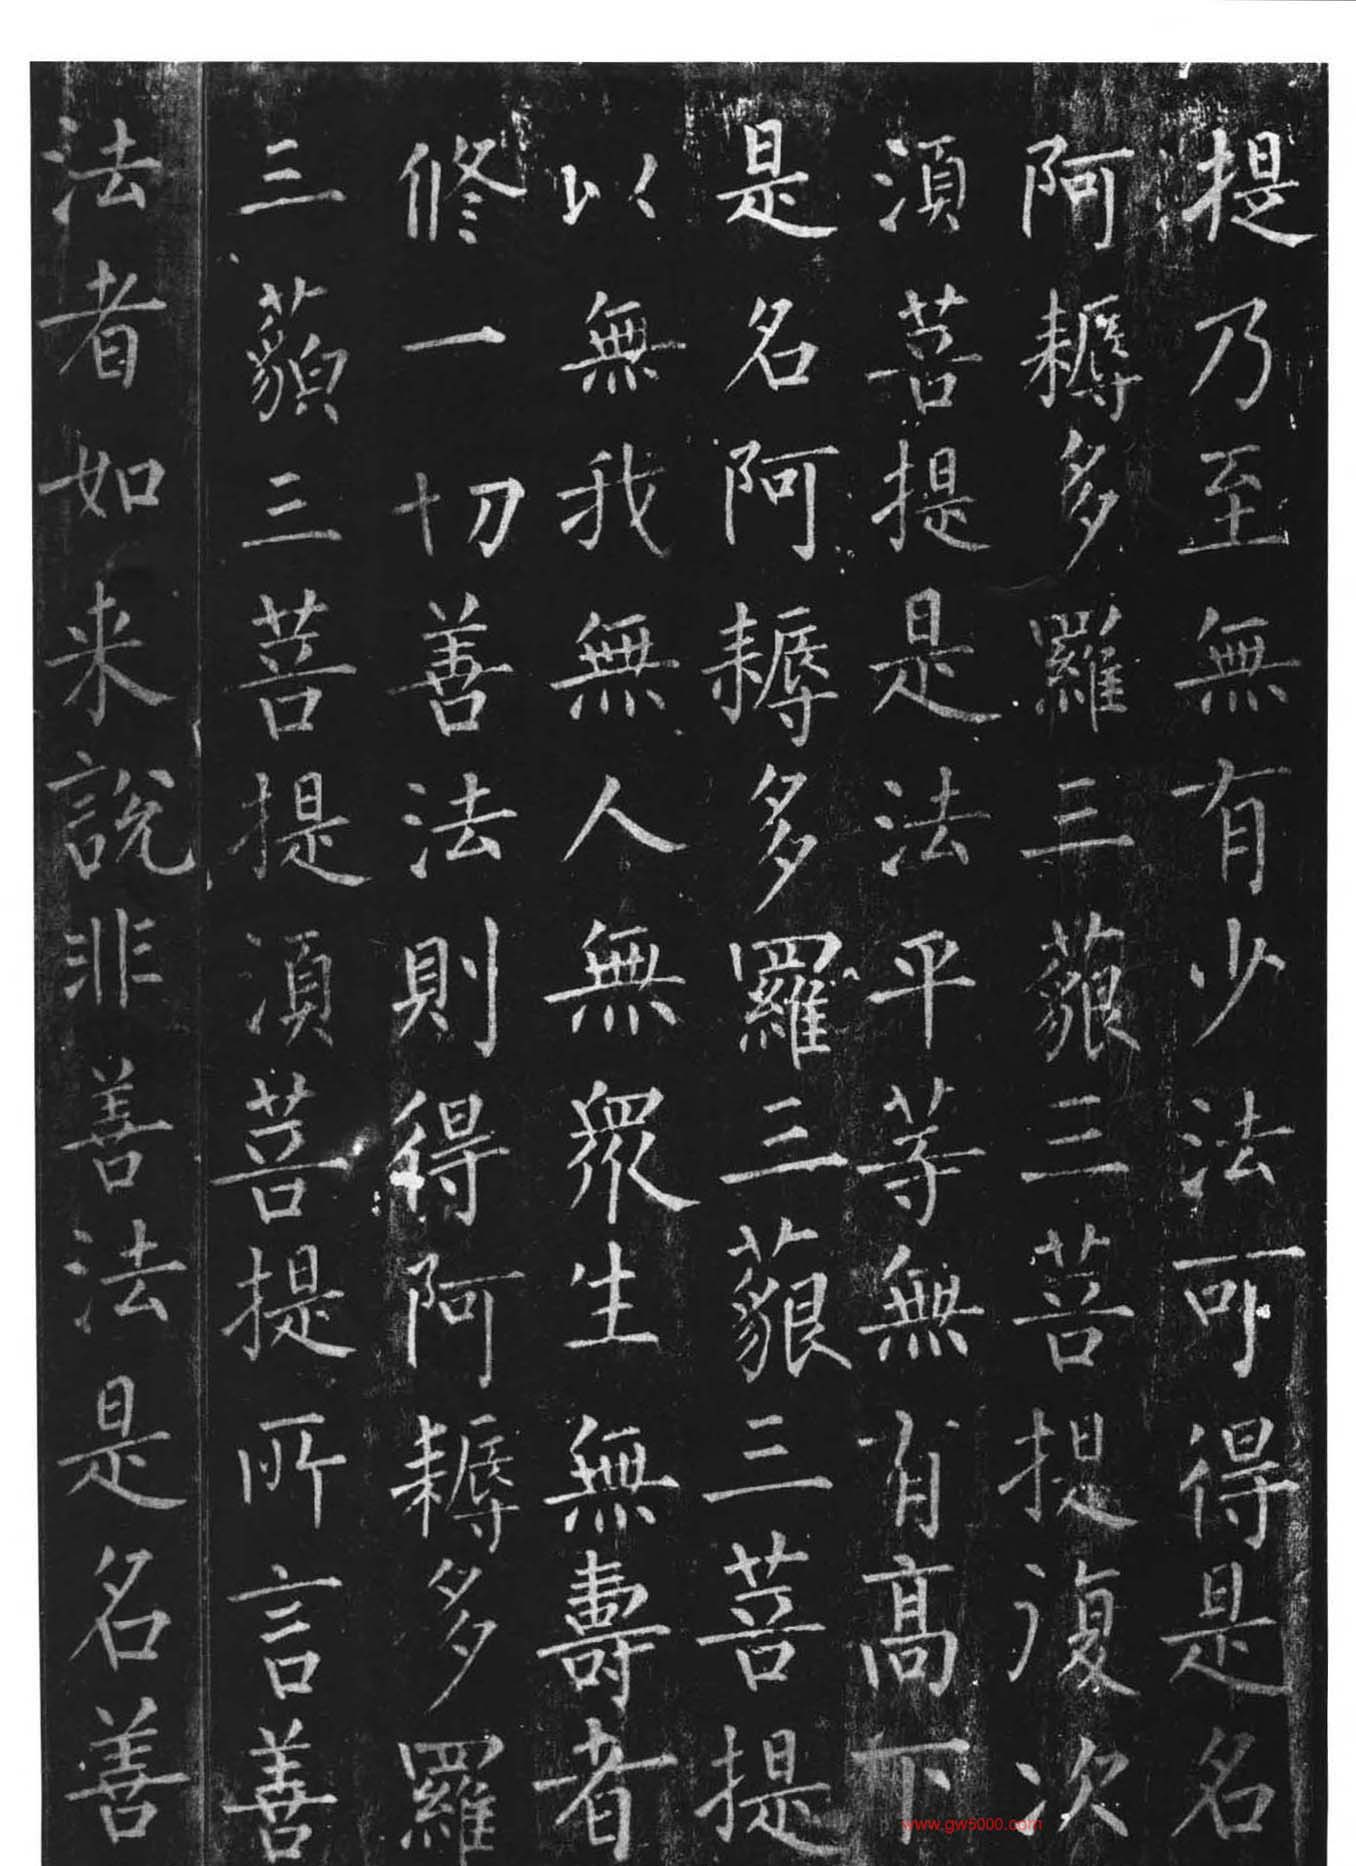 提乃至無有少法可得是名
阿耨多羅三藐三菩提復次
湏菩提是法平等無有高下
是名阿耨多羅三藐三菩提
以無我無人無眾生無壽者
修一切善法則得阿耨多羅
三藐三菩提湏菩提所言善
法者如来說非善法是名善
www.gw5000.com